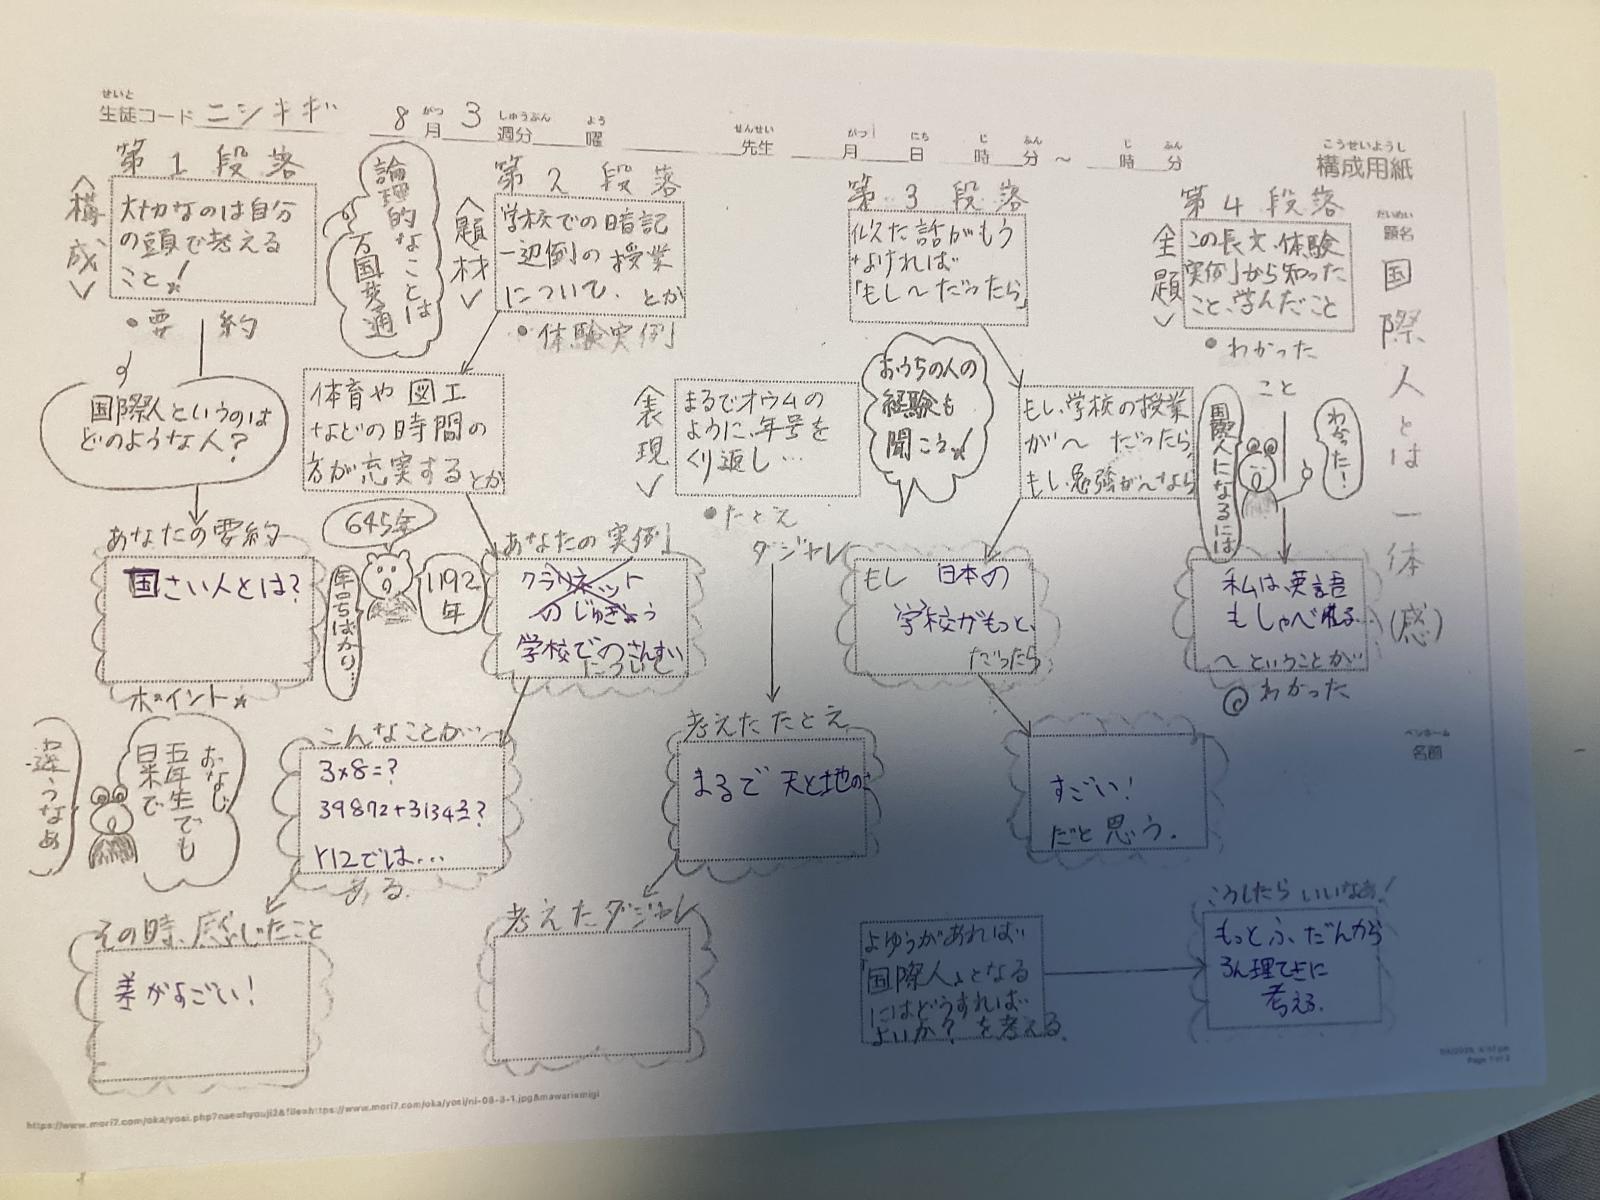 せいと
生徒コード ニシキギ 8 がつ 月 3 しゅうぶん 週分 よう 曜 せんせい 先生 がつ 月 にち 日 じ 時 ふん 分 ～ じ 時 ふん 分
こうせいようし
構成用紙
だいめい
題名
国際人とは一体(感)
ペンネーム
名前
第1段落
<構成>
大切なのは自分
の頭で考える
こと!
・要約
国際人というのは
どのような人?
あなたの要約
国さい人とは?
ポイント
論理的なことは
万国共通
第2段落
<題材>
学校での暗記
一辺倒の授業
について、とか
・体験実例
体育や図工
などの時間の
方が充実するとか
645年
1192年
年号ばかり…
あなたの実例
クラリネット
のじゅぎょう
学校でのさんすう
について
こんなことが…
3×8=?
39872+3134=?
Y12では…
ある。
おなじ
五年生でも
日本で
違うなあ
その時、感じたこと
差がすごい!
<表現>
まるでオウムの
ように、年号を
くり返し…
・たとえ
ダジャレ
考えたたとえ
まるで天と地の
考えたダジャレ
第3段落
似た話がもう
なければ
「もし〜だったら」
おうちの人の
経験も
聞こう!
もし、学校の授業
が〜だったら
もし、勉強が〜なら
もし 日本の
学校がもっと、
だったら
すごい!
だと思う。
第4段落
<主題>
この長文、体験
実例から知った
こと、学んだこと
・わかった
こと
国際人になるには
わかった!
私は、英語
もしゃべれる
〜ということが…
◎わかった
よゆうがあれば
「国際人」となる
にはどうすれば
よいか?を考える。
こうしたらいいなあ!
もっとふだんから
ろん理てきに
考える。
Page 1 of 2
https://www.mori7.com/oka/yosi.php?nae=hyouji2&file=https://www.mori7.com/oka/yosi/ni-08-3-1.jpg&mawari=migi